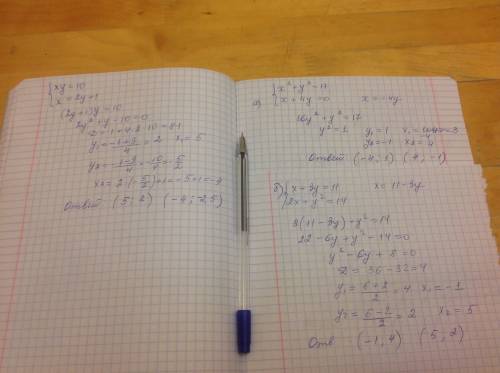 xy = 10
x = 2y+1
(2y+1)y = 10
2y²+y-10=0
D = 1+4·2·10=81
y₁ = (-1+9)/4 = 2 x₁ = 5
y₂ = (-1-9)/4 = -10/4 = -5/2
x₂ = 2·(-5/2)+1=-5+1=-4
Ответ (5; 2) (-4; -2,5)
а) x²+y²=17
x+4y=0 x=-4y
16y²+y²=17
y²=1 y₁=1
y₂=-1 x₂=4
Ответ (-4; 1) (4; -1)
б) x+3y=11 x=11-3y
2x+y²=14
2(11-3y)+y²=14
22-6y+y²-14=0
y²-6y+8=0
D = 36-32=4
y₁ = (6+2)/2 = 4 x₁=-1
y₂ = (6-2)/2 = 2 x₂=5
Отв (-1; 4) (5; 2)